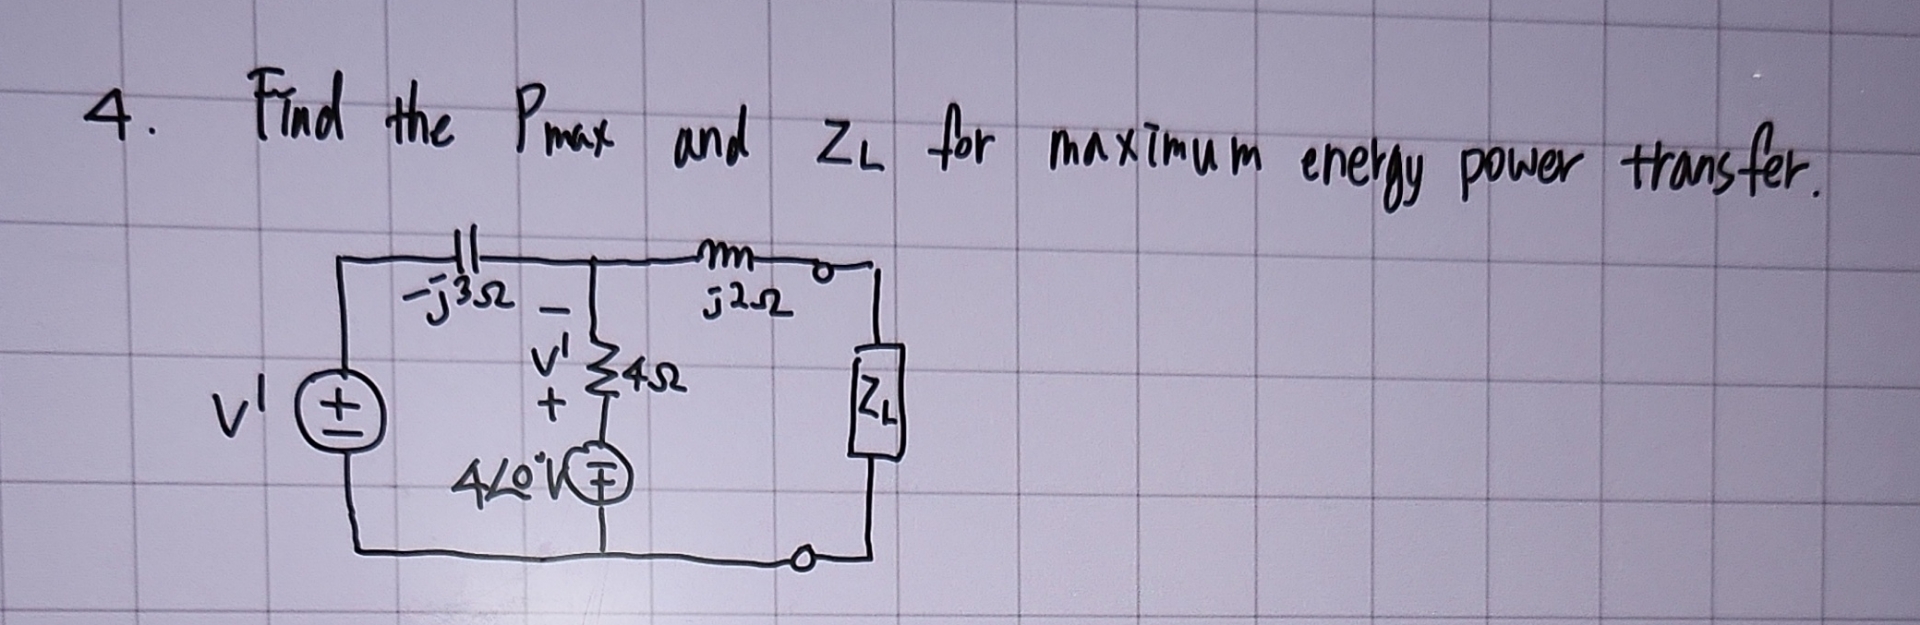 4. Find the Pmax and ZL for maximum energy power transfer.
-j3Ω
j2Ω
-
V'
+
4Ω
V'
+
-
ZL
4∠0°V
-
+